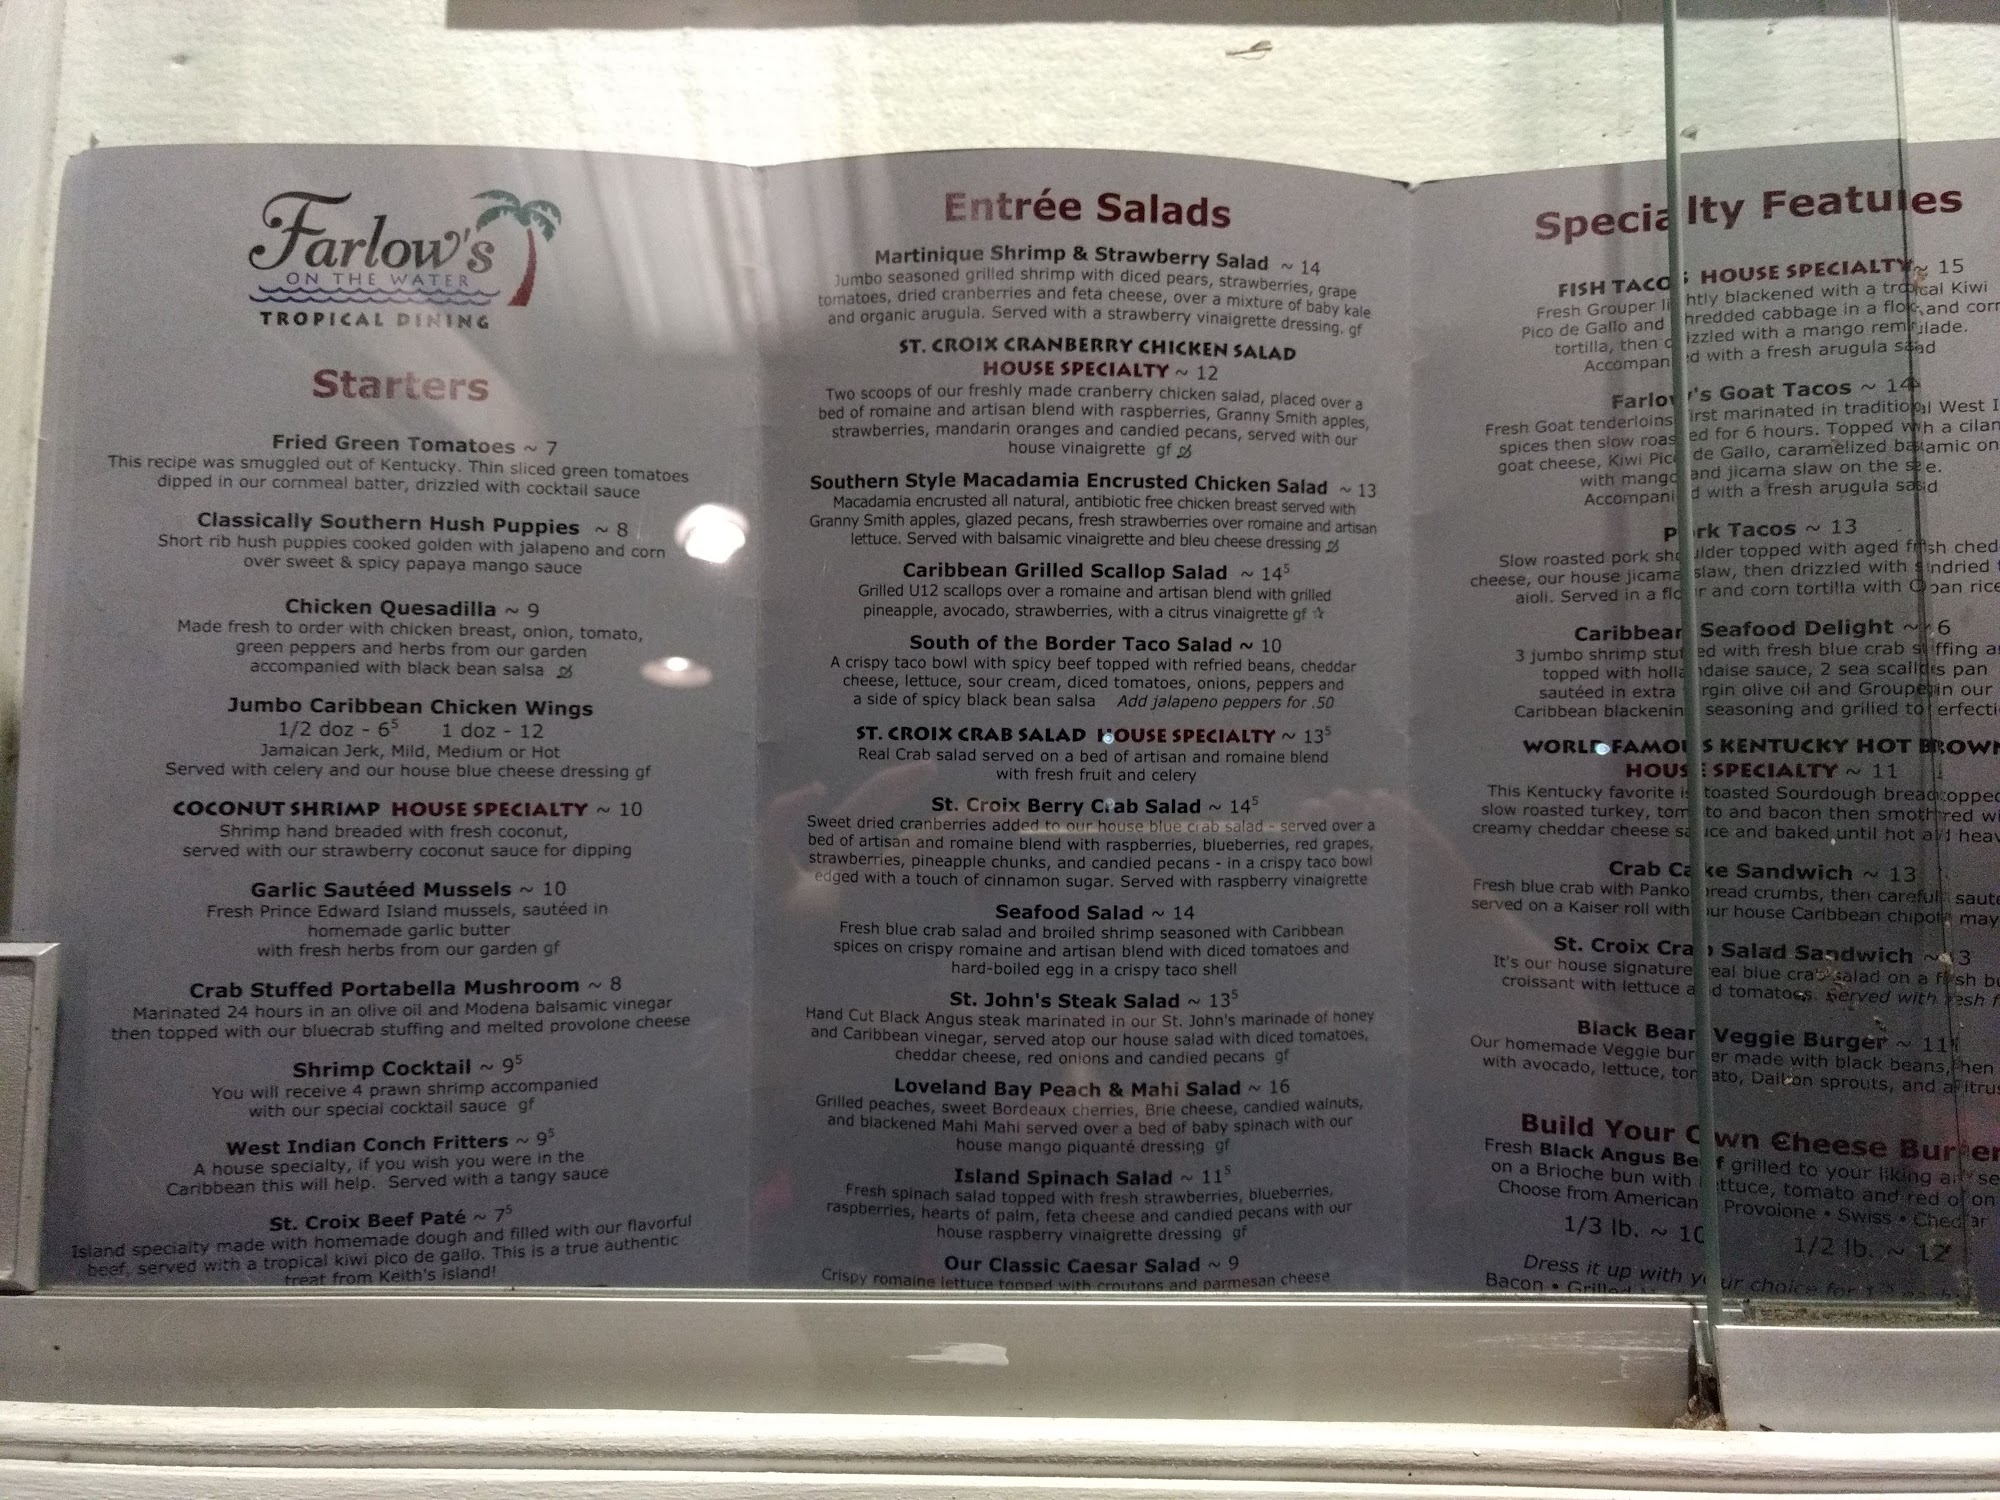 Farlow's
ON THE WATER
TROPICAL DINING
Starters
Fried Green Tomatoes ~ 7
This recipe was smuggled out of Kentucky. Thin sliced green tomatoes
dipped in our cornmeal batter, drizzled with cocktail sauce
Classically Southern Hush Puppies ~ 8
Short rib hush puppies cooked golden with jalapeno and corn
over sweet & spicy papaya mango sauce
Chicken Quesadilla ~ 9
Made fresh to order with chicken breast, onion, tomato,
green peppers and herbs from our garden
accompanied with black bean salsa
Jumbo Caribbean Chicken Wings
1/2 doz - 6⁵ 1 doz - 12
Jamaican Jerk, Mild, Medium or Hot
Served with celery and our house blue cheese dressing gf
COCONUT SHRIMP HOUSE SPECIALTY ~ 10
Shrimp hand breaded with fresh coconut,
served with our strawberry coconut sauce for dipping
Garlic Sautéed Mussels ~ 10
Fresh Prince Edward Island mussels, sautéed in
homemade garlic butter
with fresh herbs from our garden gf
Crab Stuffed Portabella Mushroom ~ 8
Marinated 24 hours in an olive oil and Modena balsamic vinegar
then topped with our bluecrab stuffing and melted provolone cheese
Shrimp Cocktail ~ 9⁵
You will receive 4 prawn shrimp accompanied
with our special cocktail sauce gf
West Indian Conch Fritters ~ 9⁵
A house specialty, if you wish you were in the
Caribbean this will help. Served with a tangy sauce
St. Croix Beef Paté ~ 7⁵
Island specialty made with homemade dough and filled with our flavorful
beef, served with a tropical kiwi pico de gallo. This is a true authentic
treat from Keith's island!
Entrée Salads
Martinique Shrimp & Strawberry Salad ~ 14
Jumbo seasoned grilled shrimp with diced pears, strawberries, grape
tomatoes, dried cranberries and feta cheese, over a mixture of baby kale
and organic arugula. Served with a strawberry vinaigrette dressing. gf
ST. CROIX CRANBERRY CHICKEN SALAD
HOUSE SPECIALTY ~ 12
Two scoops of our freshly made cranberry chicken salad, placed over a
bed of romaine and artisan blend with raspberries, Granny Smith apples,
strawberries, mandarin oranges and candied pecans, served with our
house vinaigrette gf
Southern Style Macadamia Encrusted Chicken Salad ~ 13
Macadamia encrusted all natural, antibiotic free chicken breast served with
Granny Smith apples, glazed pecans, fresh strawberries over romaine and artisan
lettuce. Served with balsamic vinaigrette and bleu cheese dressing
Caribbean Grilled Scallop Salad ~ 14⁵
Grilled U12 scallops over a romaine and artisan blend with grilled
pineapple, avocado, strawberries, with a citrus vinaigrette gf ☆
South of the Border Taco Salad ~ 10
A crispy taco bowl with spicy beef topped with refried beans, cheddar
cheese, lettuce, sour cream, diced tomatoes, onions, peppers and
a side of spicy black bean salsa Add jalapeno peppers for .50
ST. CROIX CRAB SALAD HOUSE SPECIALTY ~ 13⁵
Real Crab salad served on a bed of artisan and romaine blend
with fresh fruit and celery
St. Croix Berry Crab Salad ~ 14⁵
Sweet dried cranberries added to our house blue crab salad - served over a
bed of artisan and romaine blend with raspberries, blueberries, red grapes,
strawberries, pineapple chunks, and candied pecans - in a crispy taco bowl
edged with a touch of cinnamon sugar. Served with raspberry vinaigrette
Seafood Salad ~ 14
Fresh blue crab salad and broiled shrimp seasoned with Caribbean
spices on crispy romaine and artisan blend with diced tomatoes and
hard-boiled egg in a crispy taco shell
St. John's Steak Salad ~ 13⁵
Hand Cut Black Angus steak marinated in our St. John's marinade of honey
and Caribbean vinegar, served atop our house salad with diced tomatoes,
cheddar cheese, red onions and candied pecans gf
Loveland Bay Peach & Mahi Salad ~ 16
Grilled peaches, sweet Bordeaux cherries, Brie cheese, candied walnuts,
and blackened Mahi Mahi served over a bed of baby spinach with our
house mango piquanté dressing gf
Island Spinach Salad ~ 11⁵
Fresh spinach salad topped with fresh strawberries, blueberries,
raspberries, hearts of palm, feta cheese and candied pecans with our
house raspberry vinaigrette dressing gf
Our Classic Caesar Salad ~ 9
Crispy romaine lettuce topped with croutons and parmesan cheese
Specialty Features
FISH TACOS HOUSE SPECIALTY ~ 15
Fresh Grouper lightly blackened with a tropical Kiwi
Pico de Gallo and shredded cabbage in a flour and corn
tortilla, then drizzled with a mango remoulade.
Accompanied with a fresh arugula salad
Farlow's Goat Tacos ~ 14
Fresh Goat tenderloins first marinated in traditional West
spices then slow roasted for 6 hours. Topped with a
goat cheese, Kiwi Pico de Gallo, caramelized balsamic
with mango and jicama slaw on the side.
Accompanied with a fresh arugula salad
Pork Tacos ~ 13
Slow roasted pork shoulder topped with aged
cheese, our house jicama slaw, then drizzled with sundried
aioli. Served in a flour and corn tortilla with Cuban rice
Caribbean Seafood Delight ~
3 jumbo shrimp stuffed with fresh blue crab stuffing
topped with hollandaise sauce, 2 sea scallops pan
sautéed in extra virgin olive oil and Grouper in our
Caribbean blackening seasoning and grilled to
WORLD FAMOUS KENTUCKY HOT BROWN
HOUSE SPECIALTY ~ 11
This Kentucky favorite is toasted Sourdough bread topped
slow roasted turkey, tomato and bacon then smothered
creamy cheddar cheese sauce and baked until hot and
Crab Cake Sandwich ~ 13
Fresh blue crab with Panko bread crumbs, then carefully
served on a Kaiser roll with our house Caribbean chipotle
St. Croix Crab Salad Sandwich ~ 13
It's our house signature real blue crab salad on a fresh
croissant with lettuce and tomatoes. Served with fresh
Black Bean Veggie Burger ~ 11
Our homemade Veggie burger made with black beans, then
with avocado, lettuce, tomato, Daikon sprouts, and a
Build Your Own Cheese Burger
Fresh Black Angus Beef grilled to your liking
on a Brioche bun with lettuce, tomato and red onion
Choose from American Provolone • Swiss • Cheddar
1/3 lb. ~ 10 1/2 lb. ~ 12
Dress it up with your choice for
Bacon •